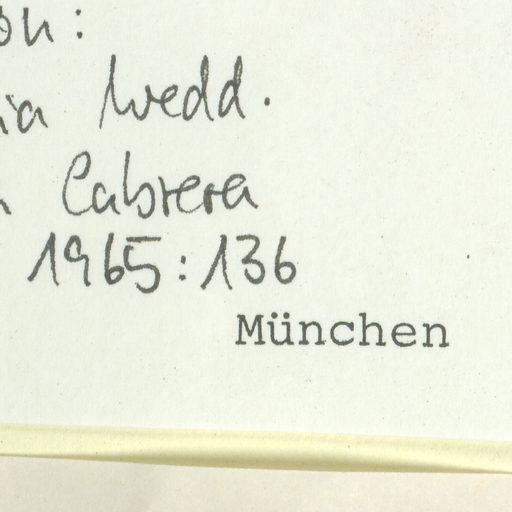 on:
ia Wedd.
Cabrera
1965:136
München